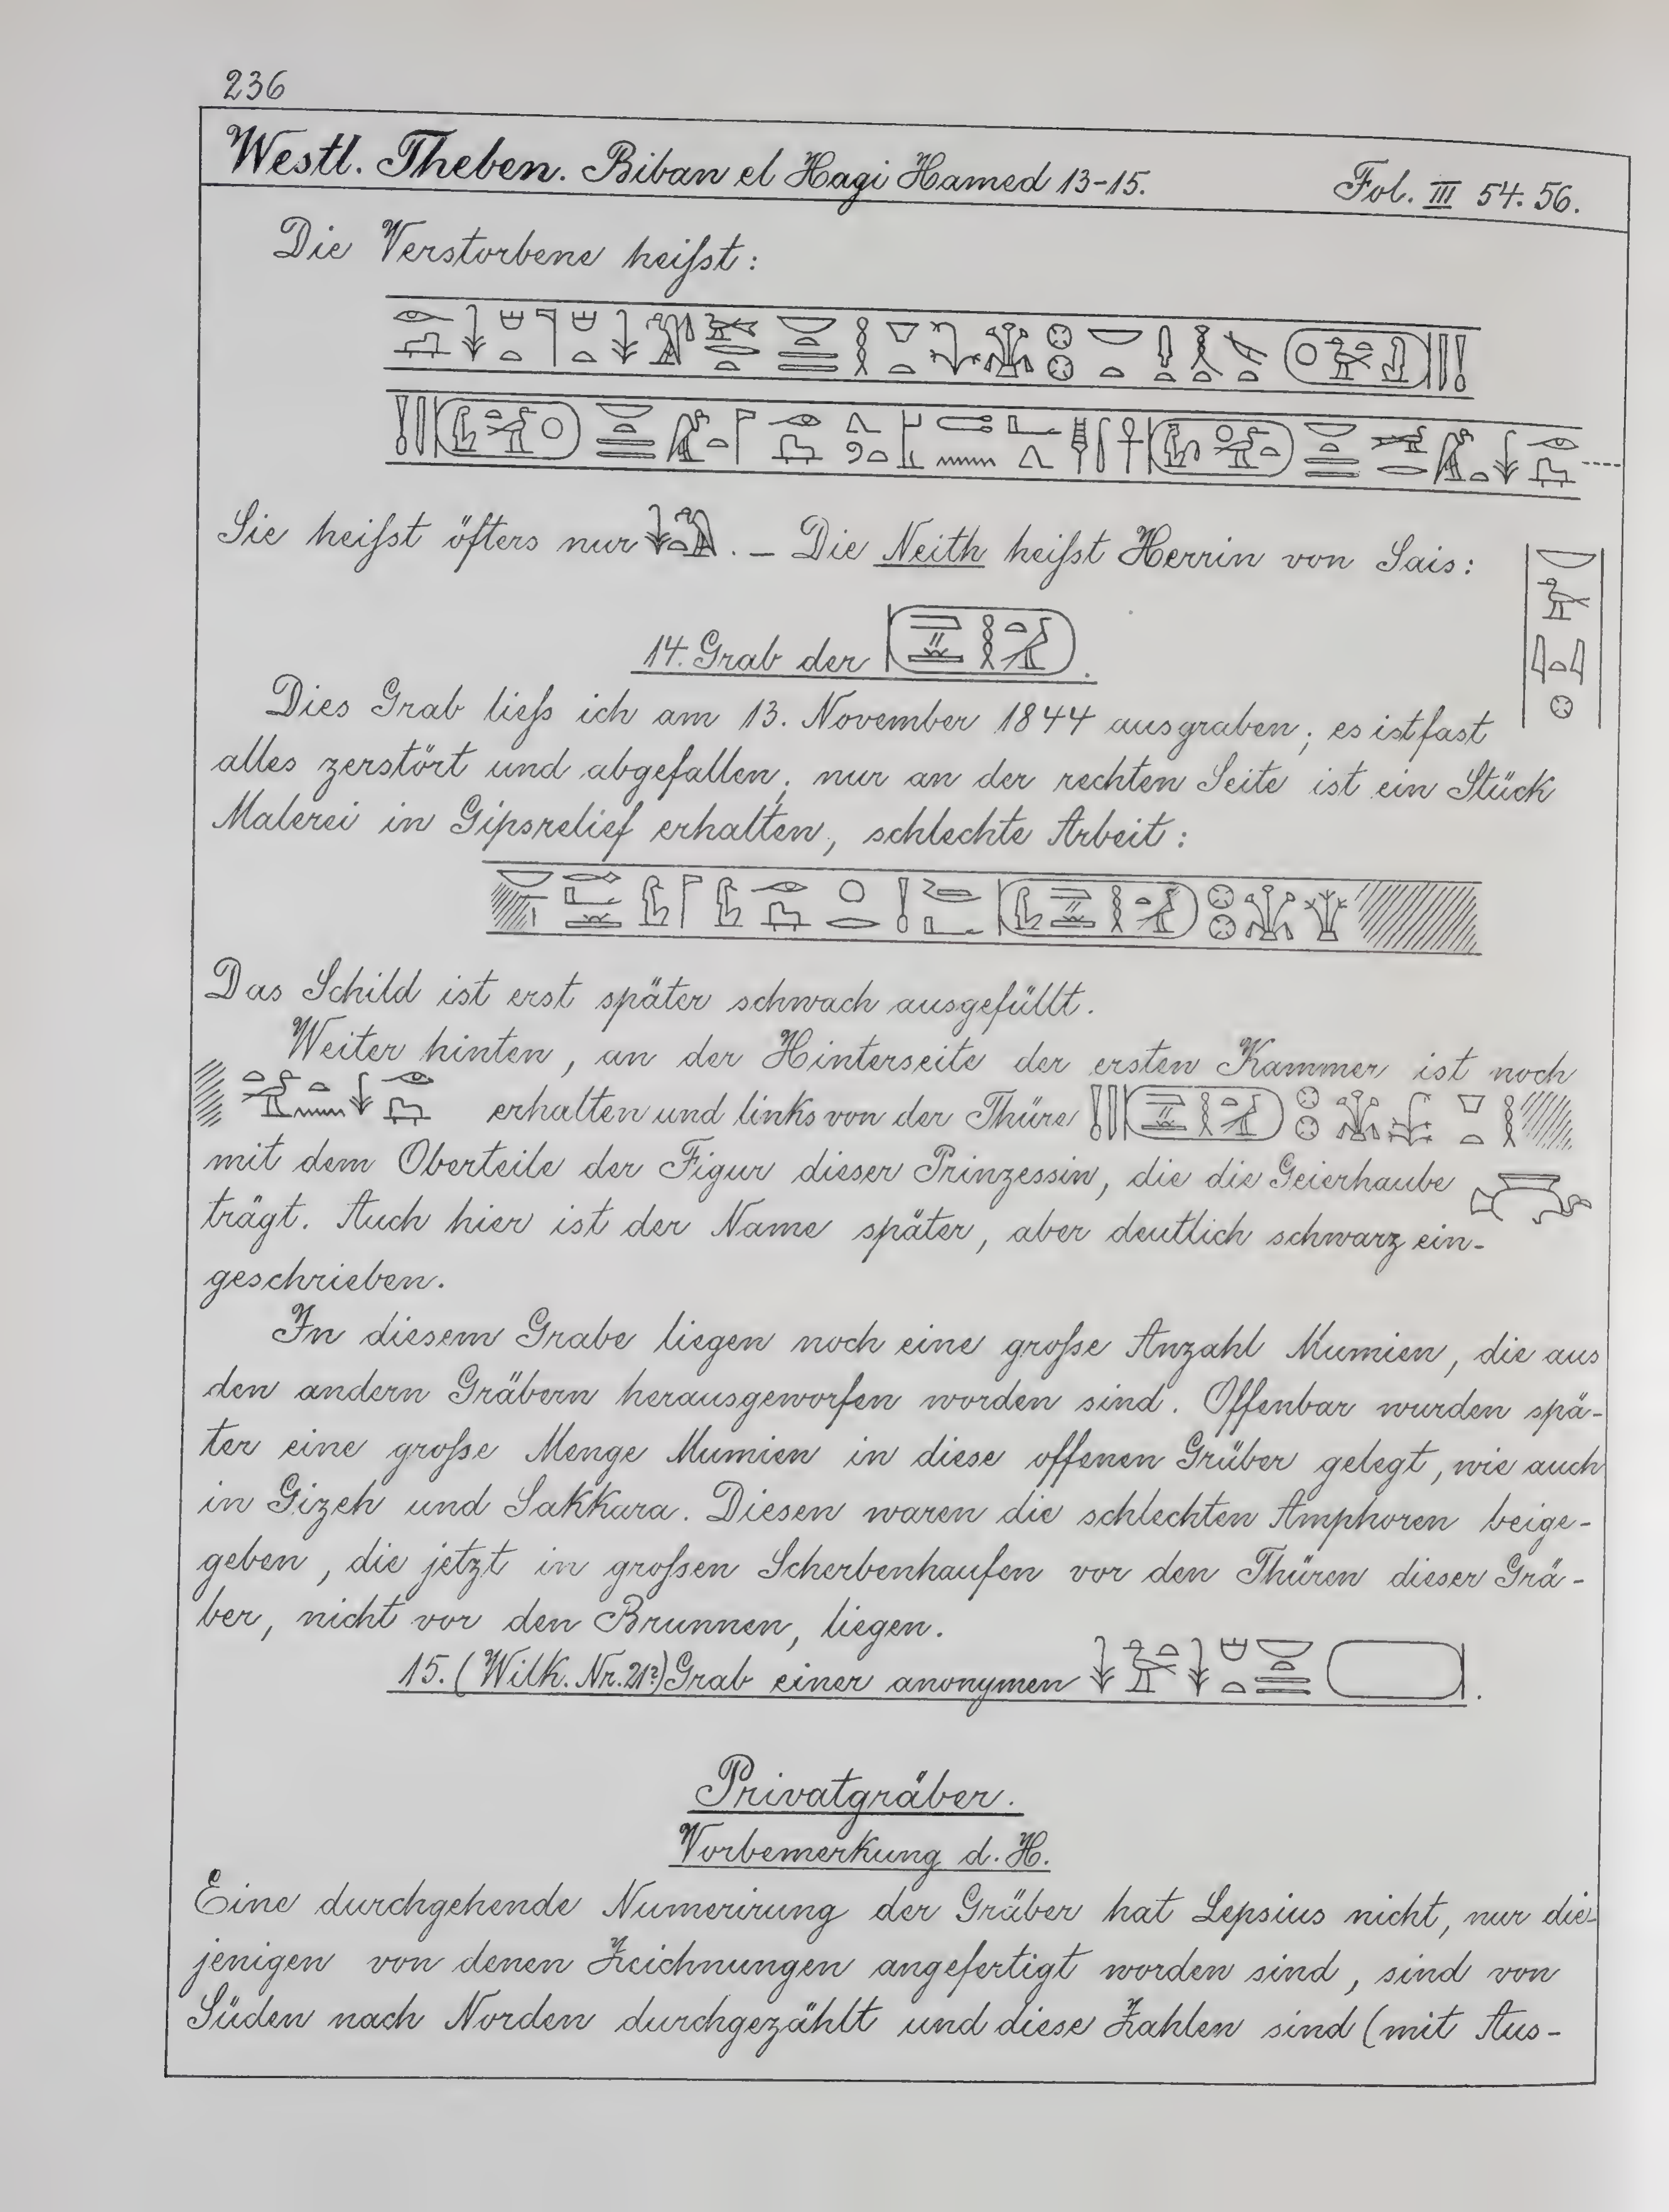 236
Westl. Theben. Biban el Hagi Hamed 13-15. Fol. III 54. 56.
Die Verstorbene heißt:
Sie heißt öfters nur . – Die Neith heißt Herrin von Sais:
14. Grab der .
Dies Grab ließ ich am 13. November 1844 ausgraben; es ist fast
alles zerstört und abgefallen; nur an der rechten Seite ist ein Stück
Malerei in Gipsrelief erhalten, schlechte Arbeit:
Das Schild ist erst später schwach ausgefüllt.
Weiter hinten, an der Hinterseite der ersten Kammer ist noch
erhalten und links von der Thüre
mit dem Oberteile der Figur dieser Prinzessin, die die Geierhaube
trägt. Auch hier ist der Name später, aber deutlich schwarz ein-
geschrieben.
In diesem Grabe liegen noch eine große Anzahl Mumien, die aus
den andern Gräbern herausgeworfen worden sind. Offenbar wurden spä-
ter eine große Menge Mumien in diese offenen Gräber gelegt, wie auch
in Gizeh und Sakkara. Diesen waren die schlechten Amphoren beige-
geben, die jetzt in großen Scherbenhaufen vor den Thüren dieser Grä-
ber, nicht vor den Brunnen, liegen.
15. (Wilk. Nr. 21?) Grab einer anonymen .
Privatgräber.
Vorbemerkung d. H.
Eine durchgehende Numerirung der Gräber hat Lepsius nicht, nur die-
jenigen von denen Zeichnungen angefertigt worden sind, sind von
Süden nach Norden durchgezählt und diese Zahlen sind (mit Aus-